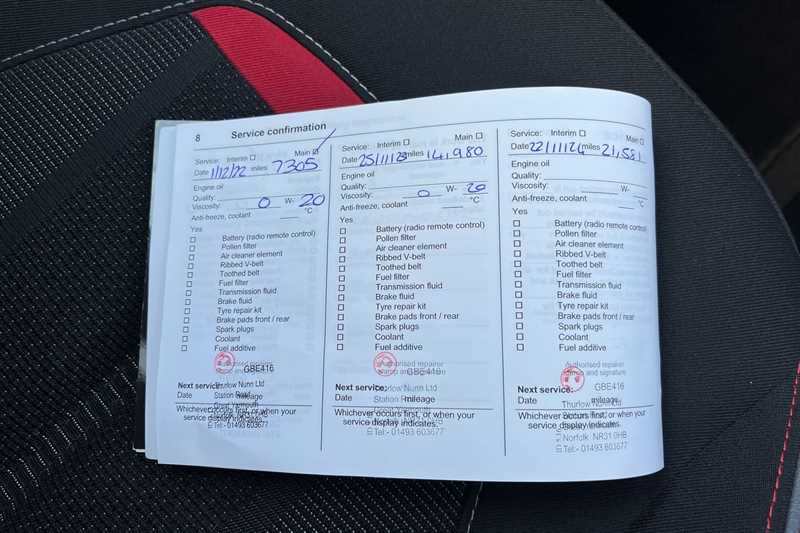 8 Service confirmation
Service: Interim Main
Date 1/12/22 miles 7305
Engine oil
Quality:
Viscosity: 0 W- 20
Anti-freeze, coolant °C
Yes
Battery (radio remote control)
Pollen filter
Air cleaner element
Ribbed V-belt
Toothed belt
Fuel filter
Transmission fluid
Brake fluid
Tyre repair kit
Brake pads front / rear
Spark plugs
Coolant
Fuel additive
Authorised repairer
GBE416
Next service: Thurlow Nunn Ltd
Date Station Road mileage
Whichever occurs first, or when your
service display indicates.
Tel:- 01493 603677
Service: Interim Main
Date 25/11/23 miles 14,980
Engine oil
Quality:
Viscosity: 0 W- 20
Anti-freeze, coolant °C
Yes
Battery (radio remote control)
Pollen filter
Air cleaner element
Ribbed V-belt
Toothed belt
Fuel filter
Transmission fluid
Brake fluid
Tyre repair kit
Brake pads front / rear
Spark plugs
Coolant
Fuel additive
Authorised repairer
GBE416
Next service: Thurlow Nunn Ltd
Date Station Road mileage
Whichever occurs first, or when your
service display indicates.
Tel:- 01493 603677
Service: Interim Main
Date 22/11/24 miles 21,581
Engine oil
Quality:
Viscosity: W-
Anti-freeze, coolant °C
Yes
Battery (radio remote control)
Pollen filter
Air cleaner element
Ribbed V-belt
Toothed belt
Fuel filter
Transmission fluid
Brake fluid
Tyre repair kit
Brake pads front / rear
Spark plugs
Coolant
Fuel additive
Authorised repairer
stamp and signature
GBE416
Next service:
Date mileage
Thurlow Nunn Ltd
Whichever occurs first, or when your
service display indicates.
Norfolk NR31 0HB
Tel:- 01493 603677